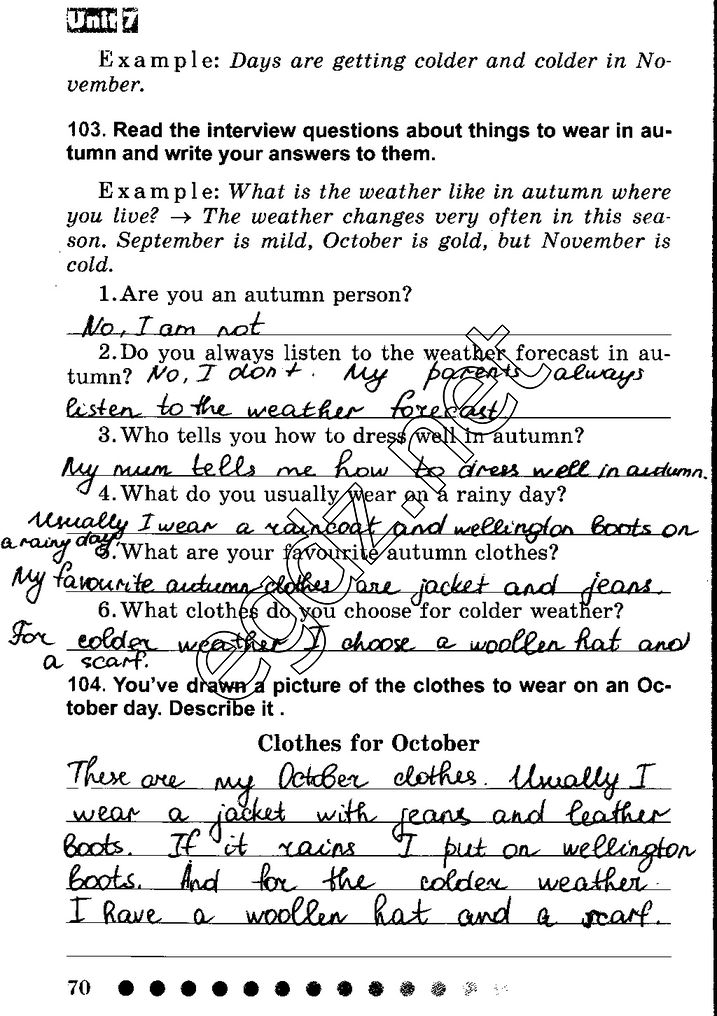 Unit 7
Example: Days are getting colder and colder in No-
vember.
103. Read the interview questions about things to wear in au-
tumn and write your answers to them.
Example: What is the weather like in autumn where
you live? → The weather changes very often in this sea-
son. September is mild, October is gold, but November is
cold.
1. Are you an autumn person?
No, I am not
2. Do you always listen to the weather forecast in au-
tumn? No, I don't. My parents always
listen to the weather forecast
3. Who tells you how to dress well in autumn?
My mum tells me how to dress well in autumn.
4. What do you usually wear on a rainy day?
Usually I wear a raincoat and wellington boots on
a rainy day.
5. What are your favourite autumn clothes?
My favourite autumn clothes are jacket and jeans.
6. What clothes do you choose for colder weather?
For colder weather I choose a woollen hat and
a scarf.
104. You've drawn a picture of the clothes to wear on an Oc-
tober day. Describe it .
Clothes for October
These are my October clothes. Usually I
wear a jacket with jeans and leather
boots. If it rains I put on wellington
boots. And for the colder weather
I have a woollen hat and a scarf.
70
egdz.net